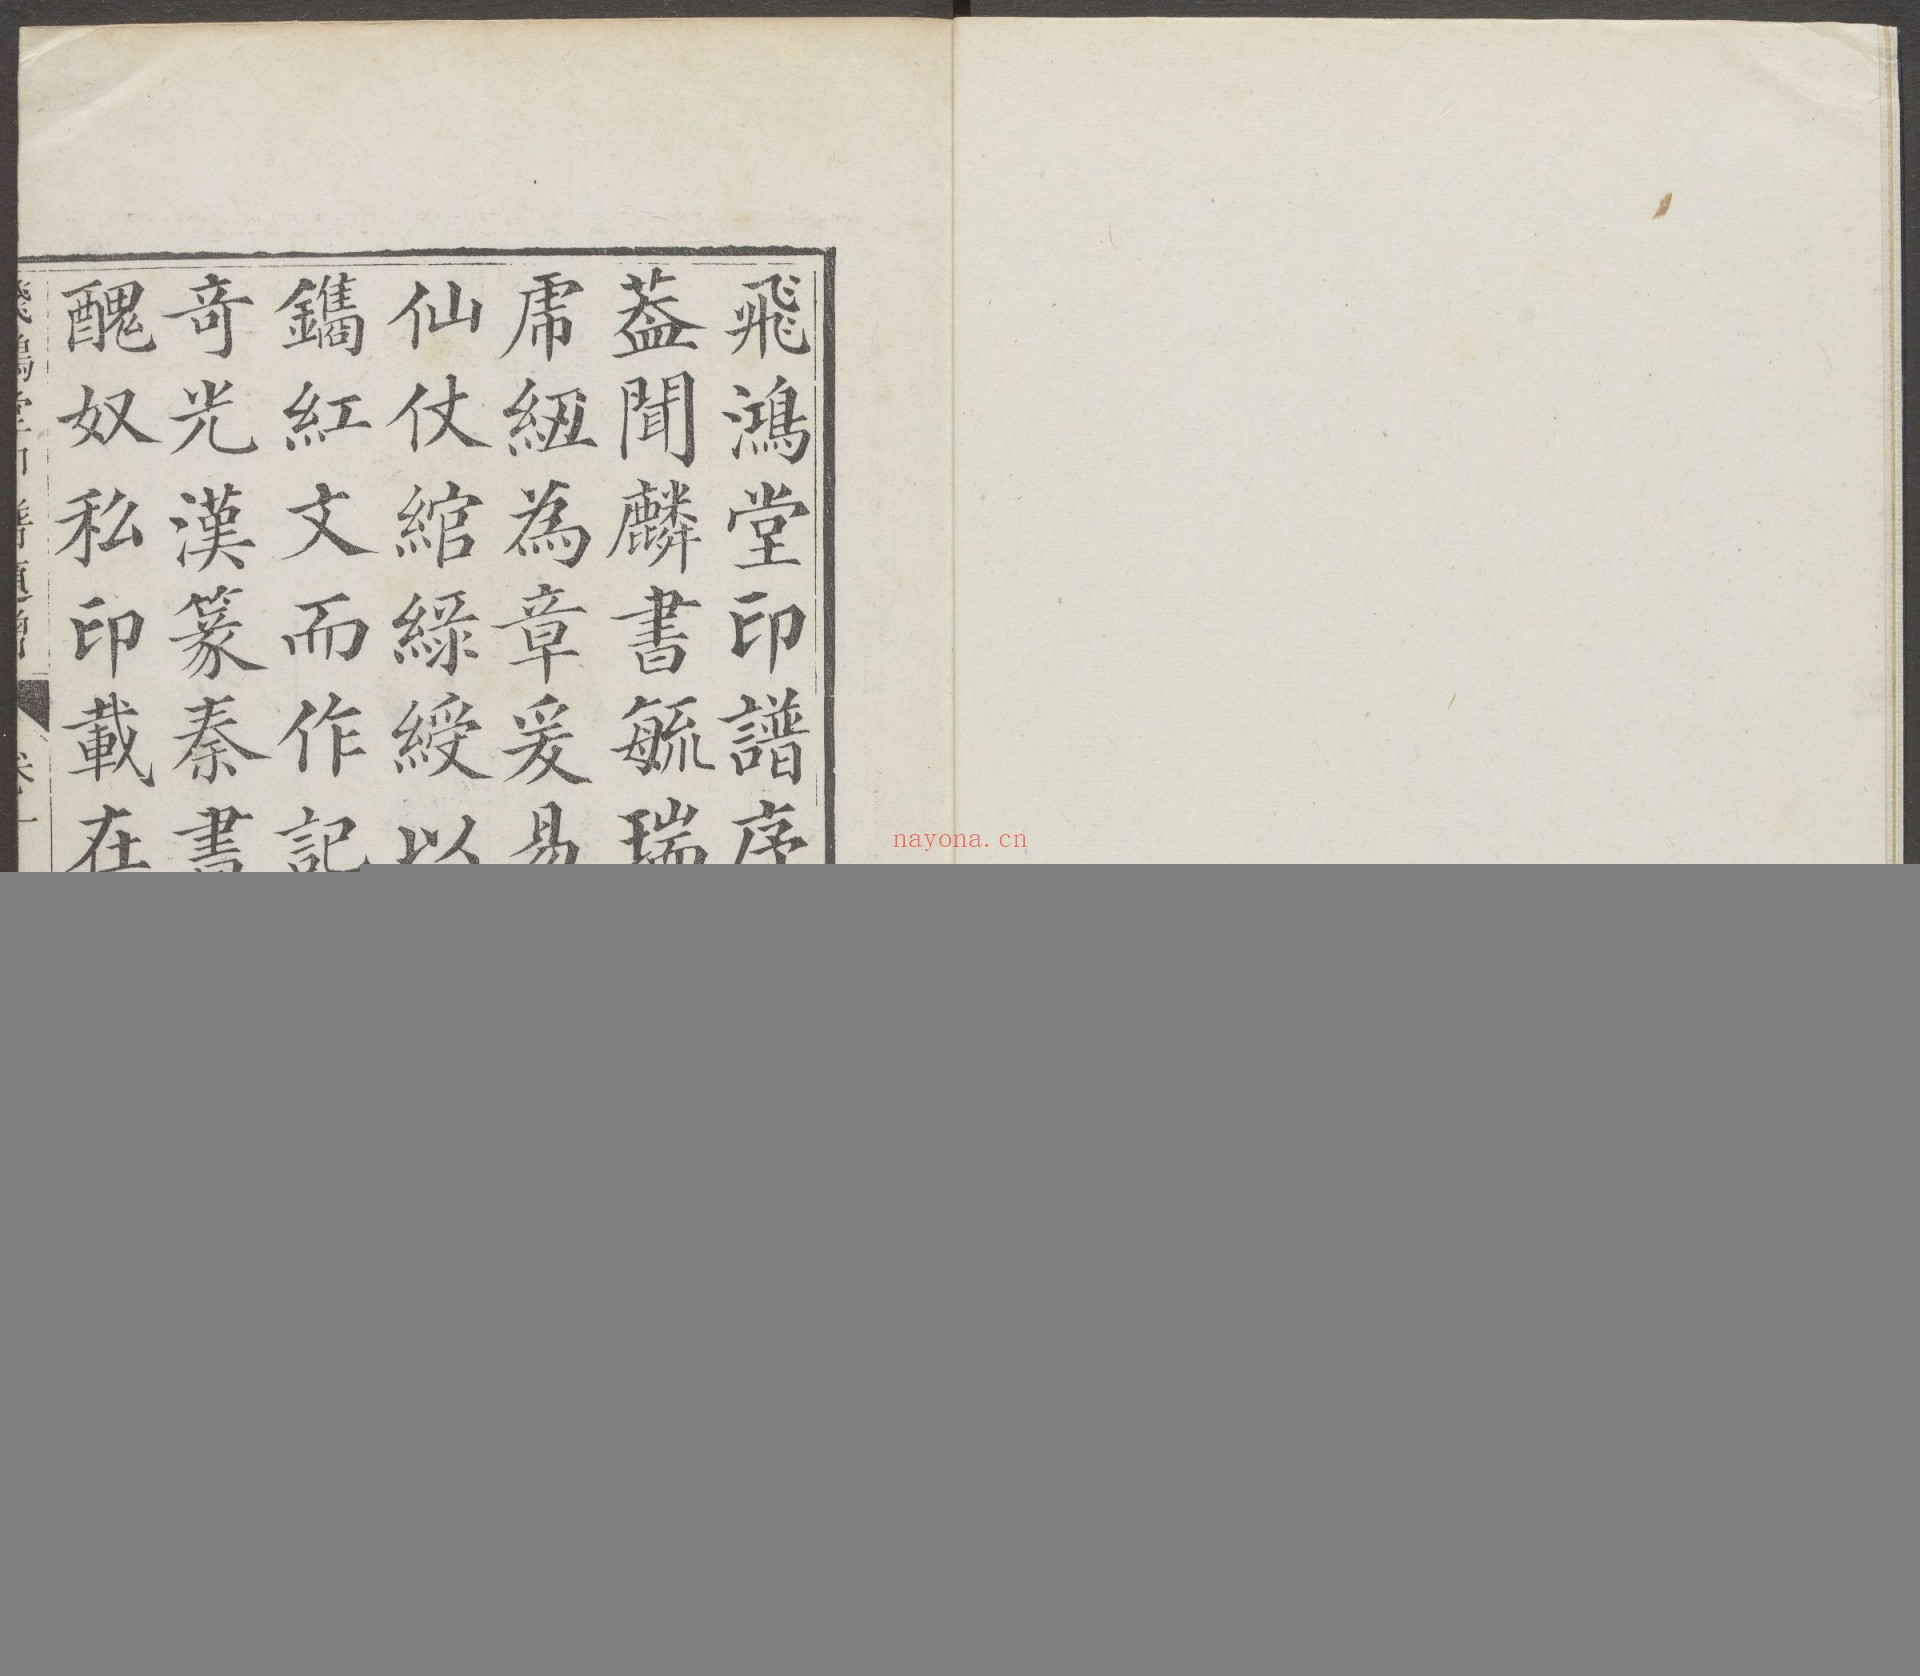 飛鴻堂印譜序
葢聞麟書毓瑞
虎紐為章爰易
仙仗綰綠綬以
鐫紅文而作記
奇光漢篆秦書
醜奴私印載在
nayona.cn